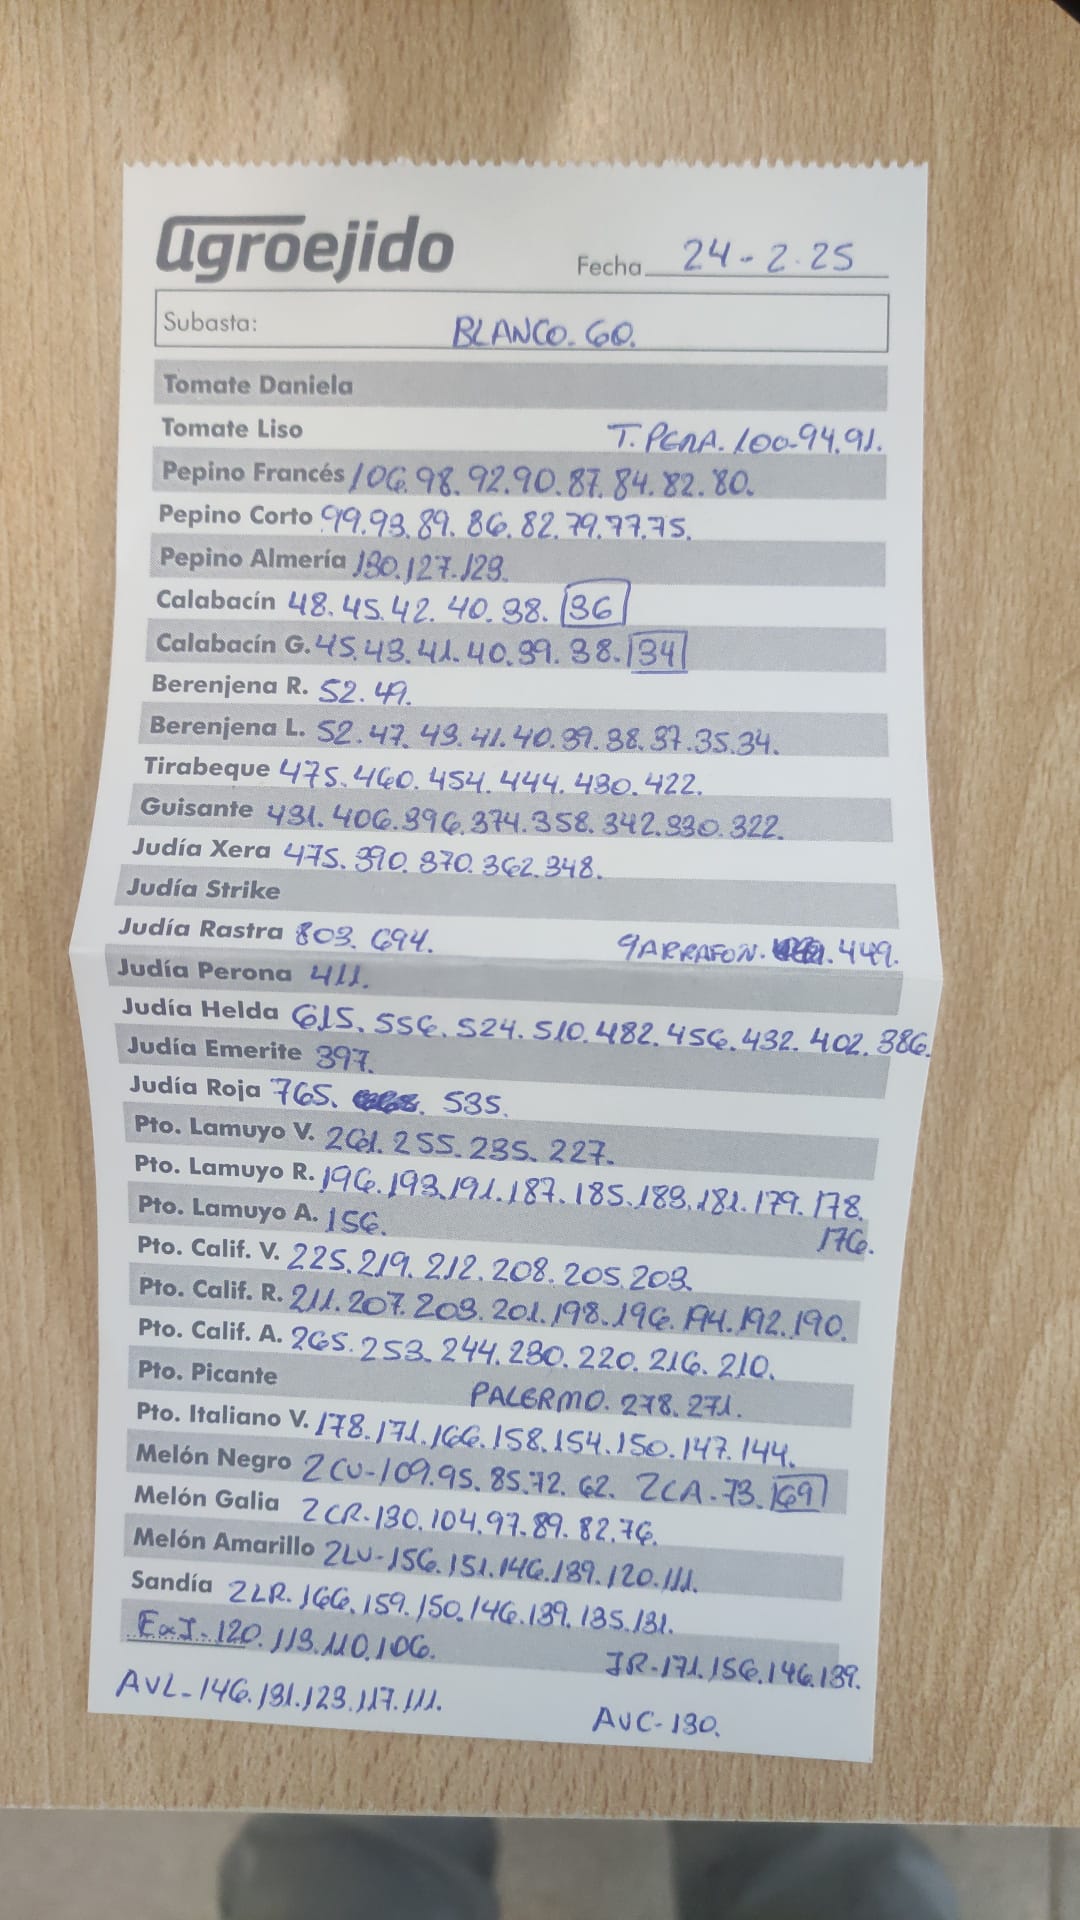 agroejido
Fecha 24-2-25
Subasta: BLANCO. 60.
Tomate Daniela
Tomate Liso T. PERA. 100-94.91.
Pepino Francés 106.98.92.90.87.84.82.80.
Pepino Corto 99.93.89.86.82.79.77.75.
Pepino Almería 130.127.123.
Calabacín 48.45.42.40.38.36
Calabacín G. 45.43.41.40.39.38.34
Berenjena R. 52.49.
Berenjena L. 52.47.43.41.40.39.38.37.35.34.
Tirabeque 475.460.454.444.430.422.
Guisante 431.406.396.374.358.342.330.322.
Judía Xera 475.390.370.362.348.
Judía Strike
Judía Rastra 803.694. GARRAFON. 449.
Judía Perona 411.
Judía Helda 615.556.524.510.482.456.432.402.386.
Judía Emerite 397.
Judía Roja 765. 535.
Pto. Lamuyo V. 261.255.235.227.
Pto. Lamuyo R. 196.193.191.187.185.183.181.179.178.
176.
Pto. Lamuyo A. 156.
Pto. Calif. V. 225.219.212.208.205.203.
Pto. Calif. R. 211.207.203.201.198.196.194.192.190.
Pto. Calif. A. 265.253.244.230.220.216.210.
Pto. Picante PALERMO. 278.271.
Pto. Italiano V. 178.171.166.158.154.150.147.144.
Melón Negro 2CU-109.95.85.72.62. 2CA-73.69
Melón Galia 2CR-130.104.97.89.82.76.
Melón Amarillo 2LU-156.151.146.139.120.111.
Sandía 2LR.166.159.150.146.139.135.131.
120.113.110.106. JR-171.156.146.139.
AVL-146.131.123.117.111. AUC-130.